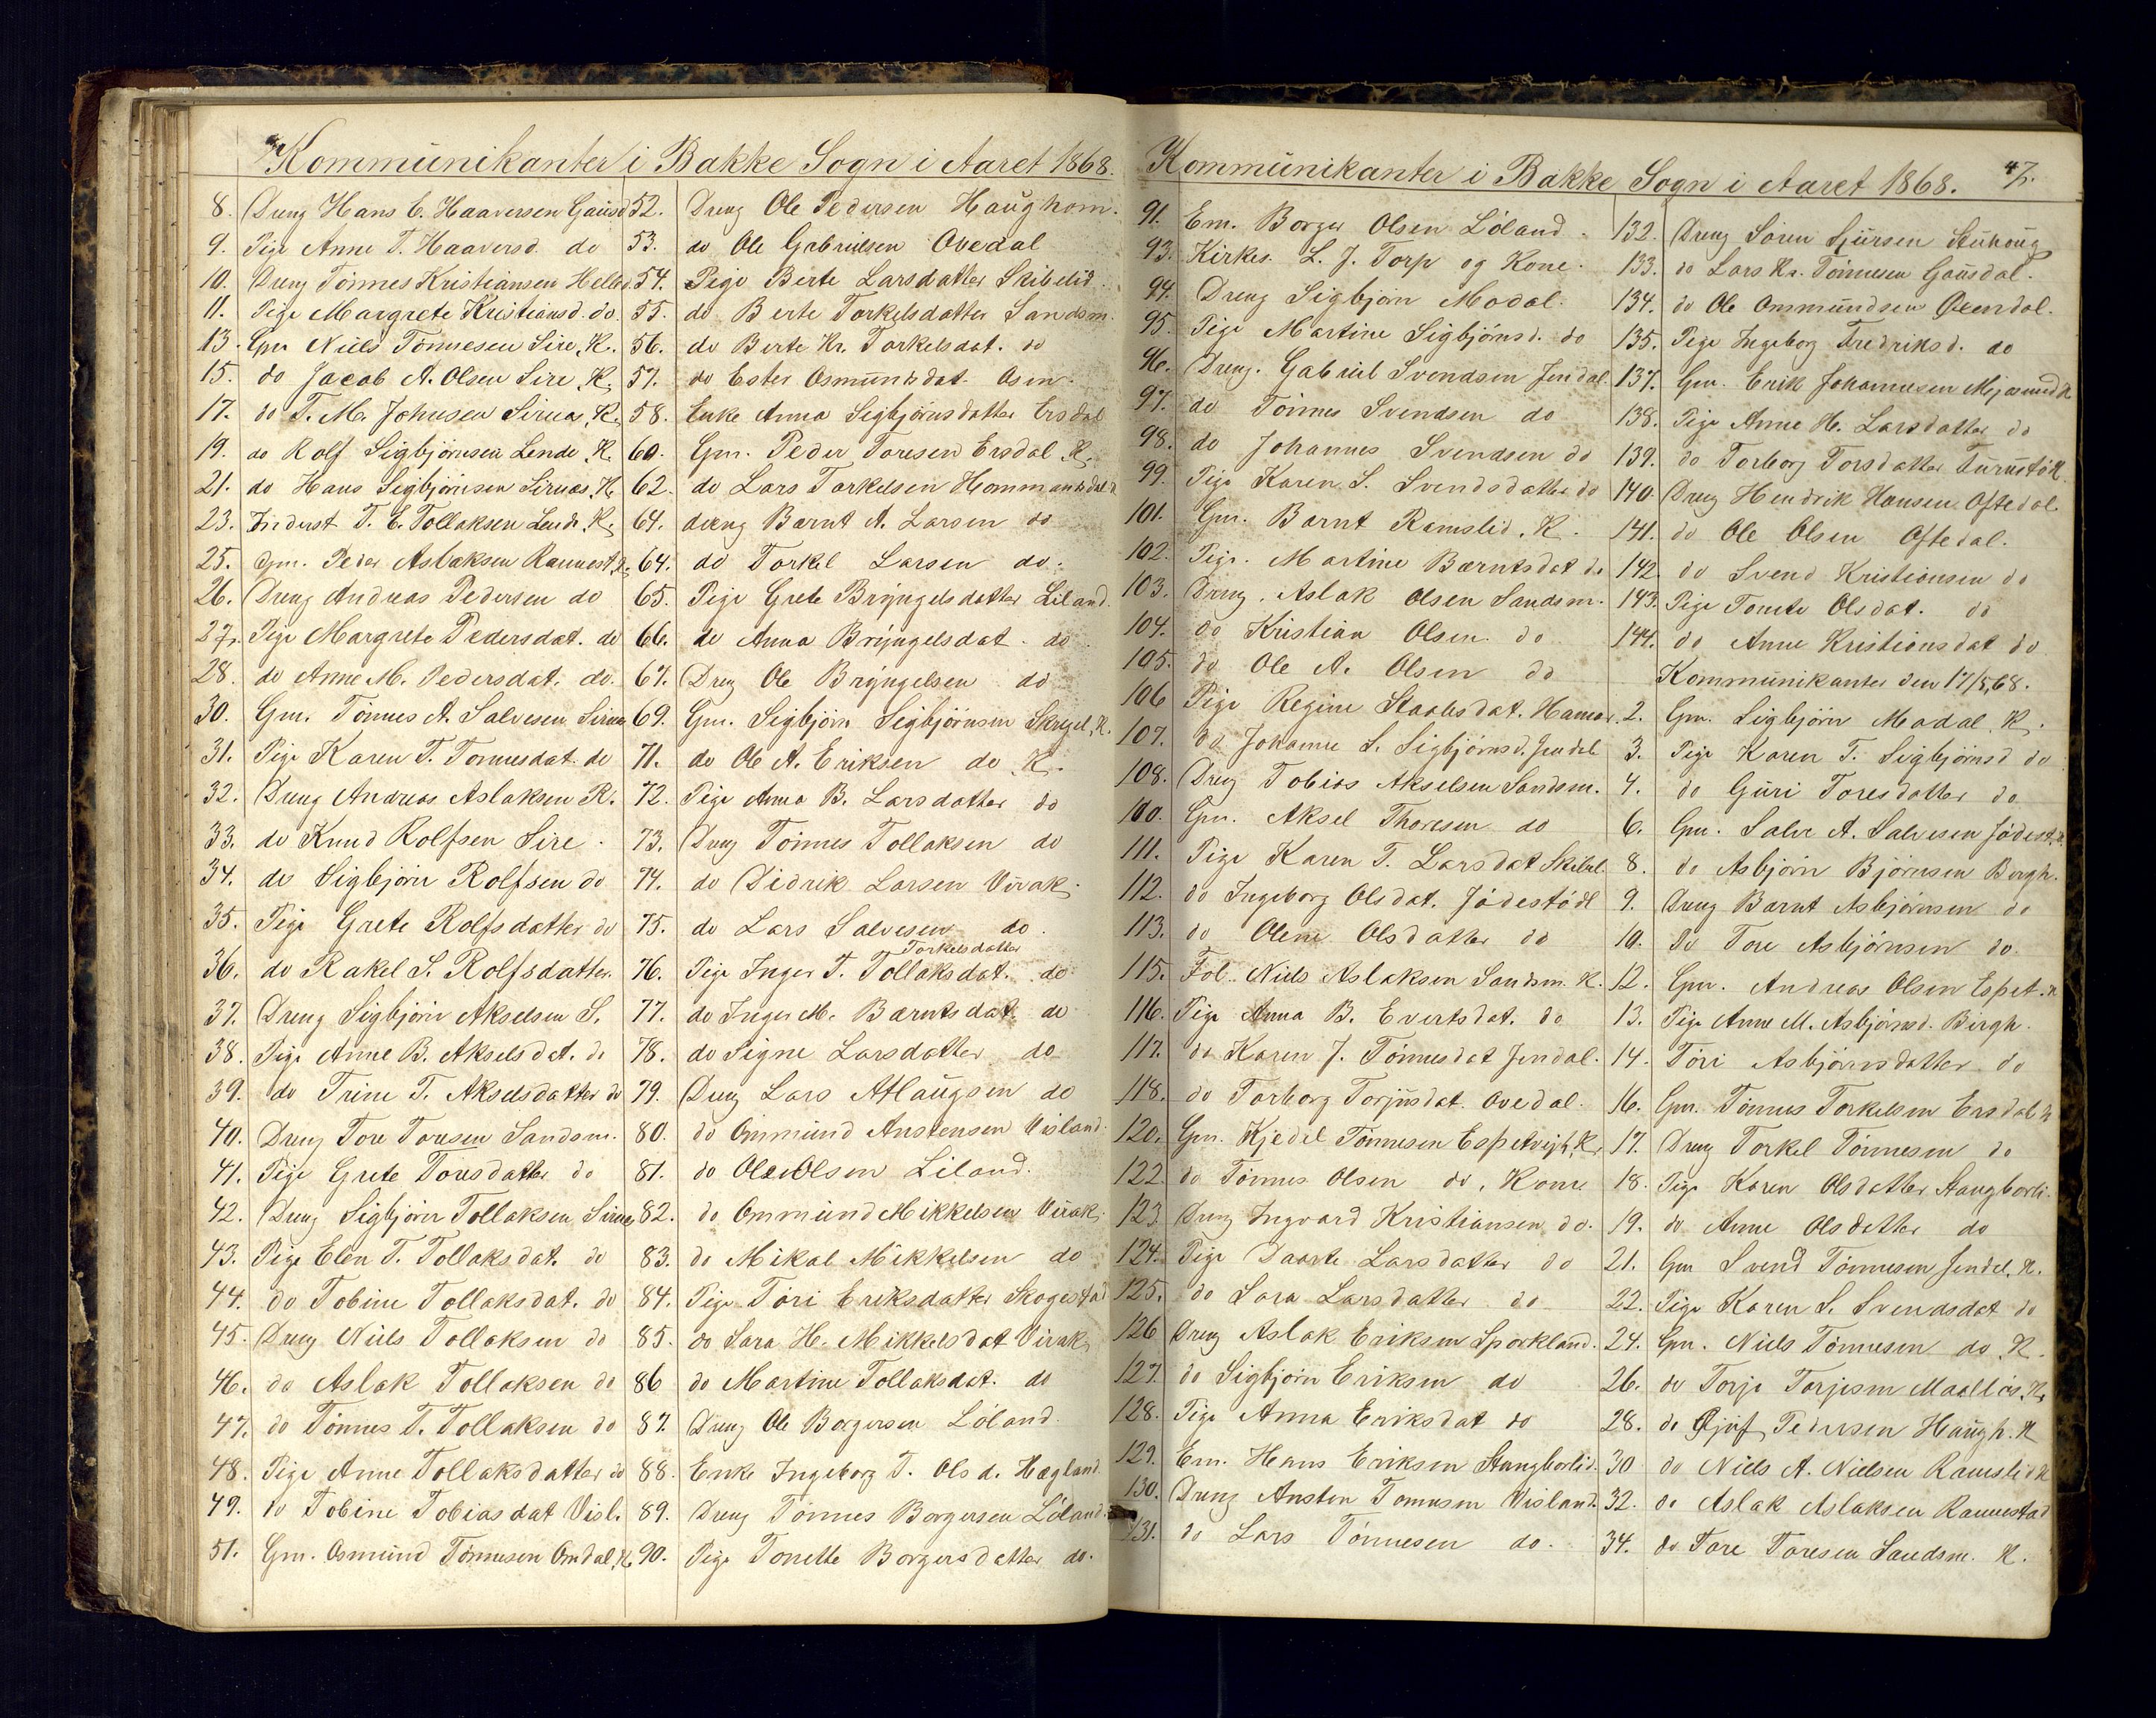 Kommunikanter i Bakke Sogn i Aaret 1868.
8. Dreng Hans C. Haaversen Gausd
9. Pige Anne T. Haaversd. do
10. Dreng Tönnes Kristiansen Helle
11. Pige Margrete Kristiansd. do.
13. Gm Niels Tönnesen Sire, K.
15. do Jacob A. Olsen Sire, K.
17. do T. M. Johnsen Sirnes, K.
19. do Rolf Sigbjörnsen Lende, K.
21. do Hans Sigbjörnsen Sirnes, K.
23. Inderst T. E. Tollaksen Lende, K.
25. Gm. Peder Aslaksen Rannest, K.
26. Dreng Andreas Pedersen do
27. Pige Margrete Pedersdat. do
28. do Anne M. Pedersdat. do.
30. Gm. Tönnes A. Salvesen Sirnes
31. Pige Karen T. Tonnesdat. do
32. Dreng Andreas Aslaksen R.
33. do Knud Rolfsen Sire
34. do Sigbjörn Rolfsen do
35. Pige Grete Rolfsdatter do
36. do Rakel S. Rolfsdatter.
37. Dreng Sigbjörn Akselsen S.
38. Pige Anne B. Akselsdt. do
39. do Trine T. Akselsdatter do
40. Dreng Tore Toresen Sandsm.
41. Pige Grete Toresdatter do
42. Dreng Sigbjörn Tollaksen, Sirnes
43. Pige Elen T. Tollaksdat. do
44. do Tobine Tollaksdat. do
45. Dreng Niels Tollaksen do
46. do Aslak Tollaksen do
47. do Tönnes T. Tollaksen do
48. Pige Anne Tollaksdatter do
49. do Tobine Tobiasdat Visl.
51. Gm. Osmund Tönnesen Omdal, K
52. Dreng Ole Pedersen Haughom.
53. do Ole Gabrielsen Ovedal
54. Pige Berte Larsdatter Skibelid.
55. do Berte Torkelsdatter Sandsm.
56. do Berte Kr. Torkelsdat. do
57. do Ester Osmundsdat. Osen.
58. Enke Anna Sigbjörnsdatter Ersdal
60. Gm. Peder Toresen Ersdal K.
62. do Lars Torkelsen Hommansdal
64. dreng Bærnt A. Larsen do
64. do Torkel Larsen do.
65. Pige Grete Bryngelsdatter Liland.
66. do Anna Bryngelsdat. do
67. Dreng Ole Bryngelsen do
69. Gm. Sigbjörn Sigbjörnsen Skregel, K.
71. do Ole A. Eriksen do K.
72. Pige Anna B. Larsdatter do
73. Dreng Tönnes Tollaksen do
74. do Didrik Larsen Virak.
75. do Lars Salvesen do.
Torkelsdatter
76. Pige Inger T. Tollaksdat. do
77. do Inger M. Bærntsdat. do
78. do Signe Larsdatter do
79. Dreng Lars Atlaugsen do
80. do Ommund Anstensen Visland.
81. do Ole Olsen Liland.
82. do Ommund Mikkelsen Virak.
83. do Mikal Mikkelsen do
84. Pige Töri Eriksdatter Skogestad
85. do Sara H. Mikkelsdat Virak.
86 do Martine Tollaksdat. do
87. Dreng Ole Borgersen Löland.
88. Enke Ingeborg T. Olsd. Hægland.
89. Dreng Tönnes Borgersen Löland.
90. Pige Tonette Borgersdatter do.
Kommunikanter i Bakke Sogn i Aaret 1868. 47.
91. Em. Borger Olsen Löland.
93. Kirkes. L. J. Torp og Kone.
94. Dreng Sigbjörn Modal.
95. Pige Martine Sigbjörnsd. do
96. Dreng. Gabriel Svendsen Jendal.
97. do Tönnes Svendsen do
98. do Johannes Svendsen do
99. Pige Karen S. Svendsdatter do
101. Gm. Barnt Ramslid. K.
102. Pige. Martine Bærntsdat do
103. Dreng. Aslak Olsen Sandsm.
104. do Kristian Olsen do
105. do Ole A. Olsen do
106 Pige Regine Staalesdat. Hamar.
107. do Johanne S. Sigbjörnsd. Jendal
108. Dreng Tobias Akselsen Sandsm.
100. Gm. Aksel Thoresen do
111. Pige Karen T. Larsdat Skibel.
112. do Ingeborg Olsdat. Jödestödl
113. do Olene Olsdatter do
115. Fol. Niels Aslaksen Sandsm. K.
116. Pige Anna B. Evertsdat. do
117. do Karen J. Tönnesdat Jendal.
118. do Torborg Torjusdat. Ovedal.
120. Gm. Kjedel Tönnesen Espetveit, K.
122. do Tönnes Olsen do, Kone
123 Dreng Ingvard Kristiansen do.
124. Pige Daarte Larsdatter do
125. do Sara Larsdatter do
126 Dreng Aslak Eriksen Sporkland.
127. do Sigbjörn Eriksen do
128. Pige Anna Eriksdat do
129. Em. Hans Eriksen Stangborlid.
130. Dreng Ansten Tonnesen Visland.
131. do Lars Tönnesen do.
132. Dreng Sören Sjursen
133. do Lars Kr. Tönnesen Gausdal.
134. do Ole Ommundsen Øxendal.
135. Pige Ingeborg Fredriksd. do
137. Gm. Erik Johannesen Mjasund K
138. Pige Anne H. Larsdatter do
139. do Torborg Torsdatter
140. Dreng Hendrik Hansen Oftedal.
141. do Ole Olsen Oftedal.
142. do Svend Kristiansen do
143. Pige Tonete Olsdat. do
144. do Anne Kristiansdat do
Kommunikanter den 17/5,68.
2. Gm. Sigbjörn Modal K.
3. Pige Karen T. Sigbjörnsd do
4. do Guri Toresdatter do
6. Gm. Salve A. Salvesen Jödest, K.
8. do Asbjörn Björnsen Bergh.
9. Dreng Barnt Asbjörnsen do
10. do Tore Asbjörnsen do.
12. Gm. Andreas Olsen Espet. K
13. Pige Anne M. Asbjörnsd. Birgh.
14. Töri Asbjörnsdatter do
16. Gm. Tönnes Torkelsen Ersdal K
17. Dreng Torkel Tönnesen do
18. Pige Karen Olsdatter Stangborli.
19. do Anne Olsdatter do
21. Gm Svend Tönnesen Jendal, K.
22. Pige Karen S. Svendsdat do
24. Gm. Niels Tönnesen do K.
26. do Torje Torjesen Mallös, K.
28. do Gjuf Pedersen Haugh. K
30 do Niels A. Nielsen Ramslid K
32. do Aslak Aslaksen Rannestad
34. do Tore Toresen Sandsm. K.